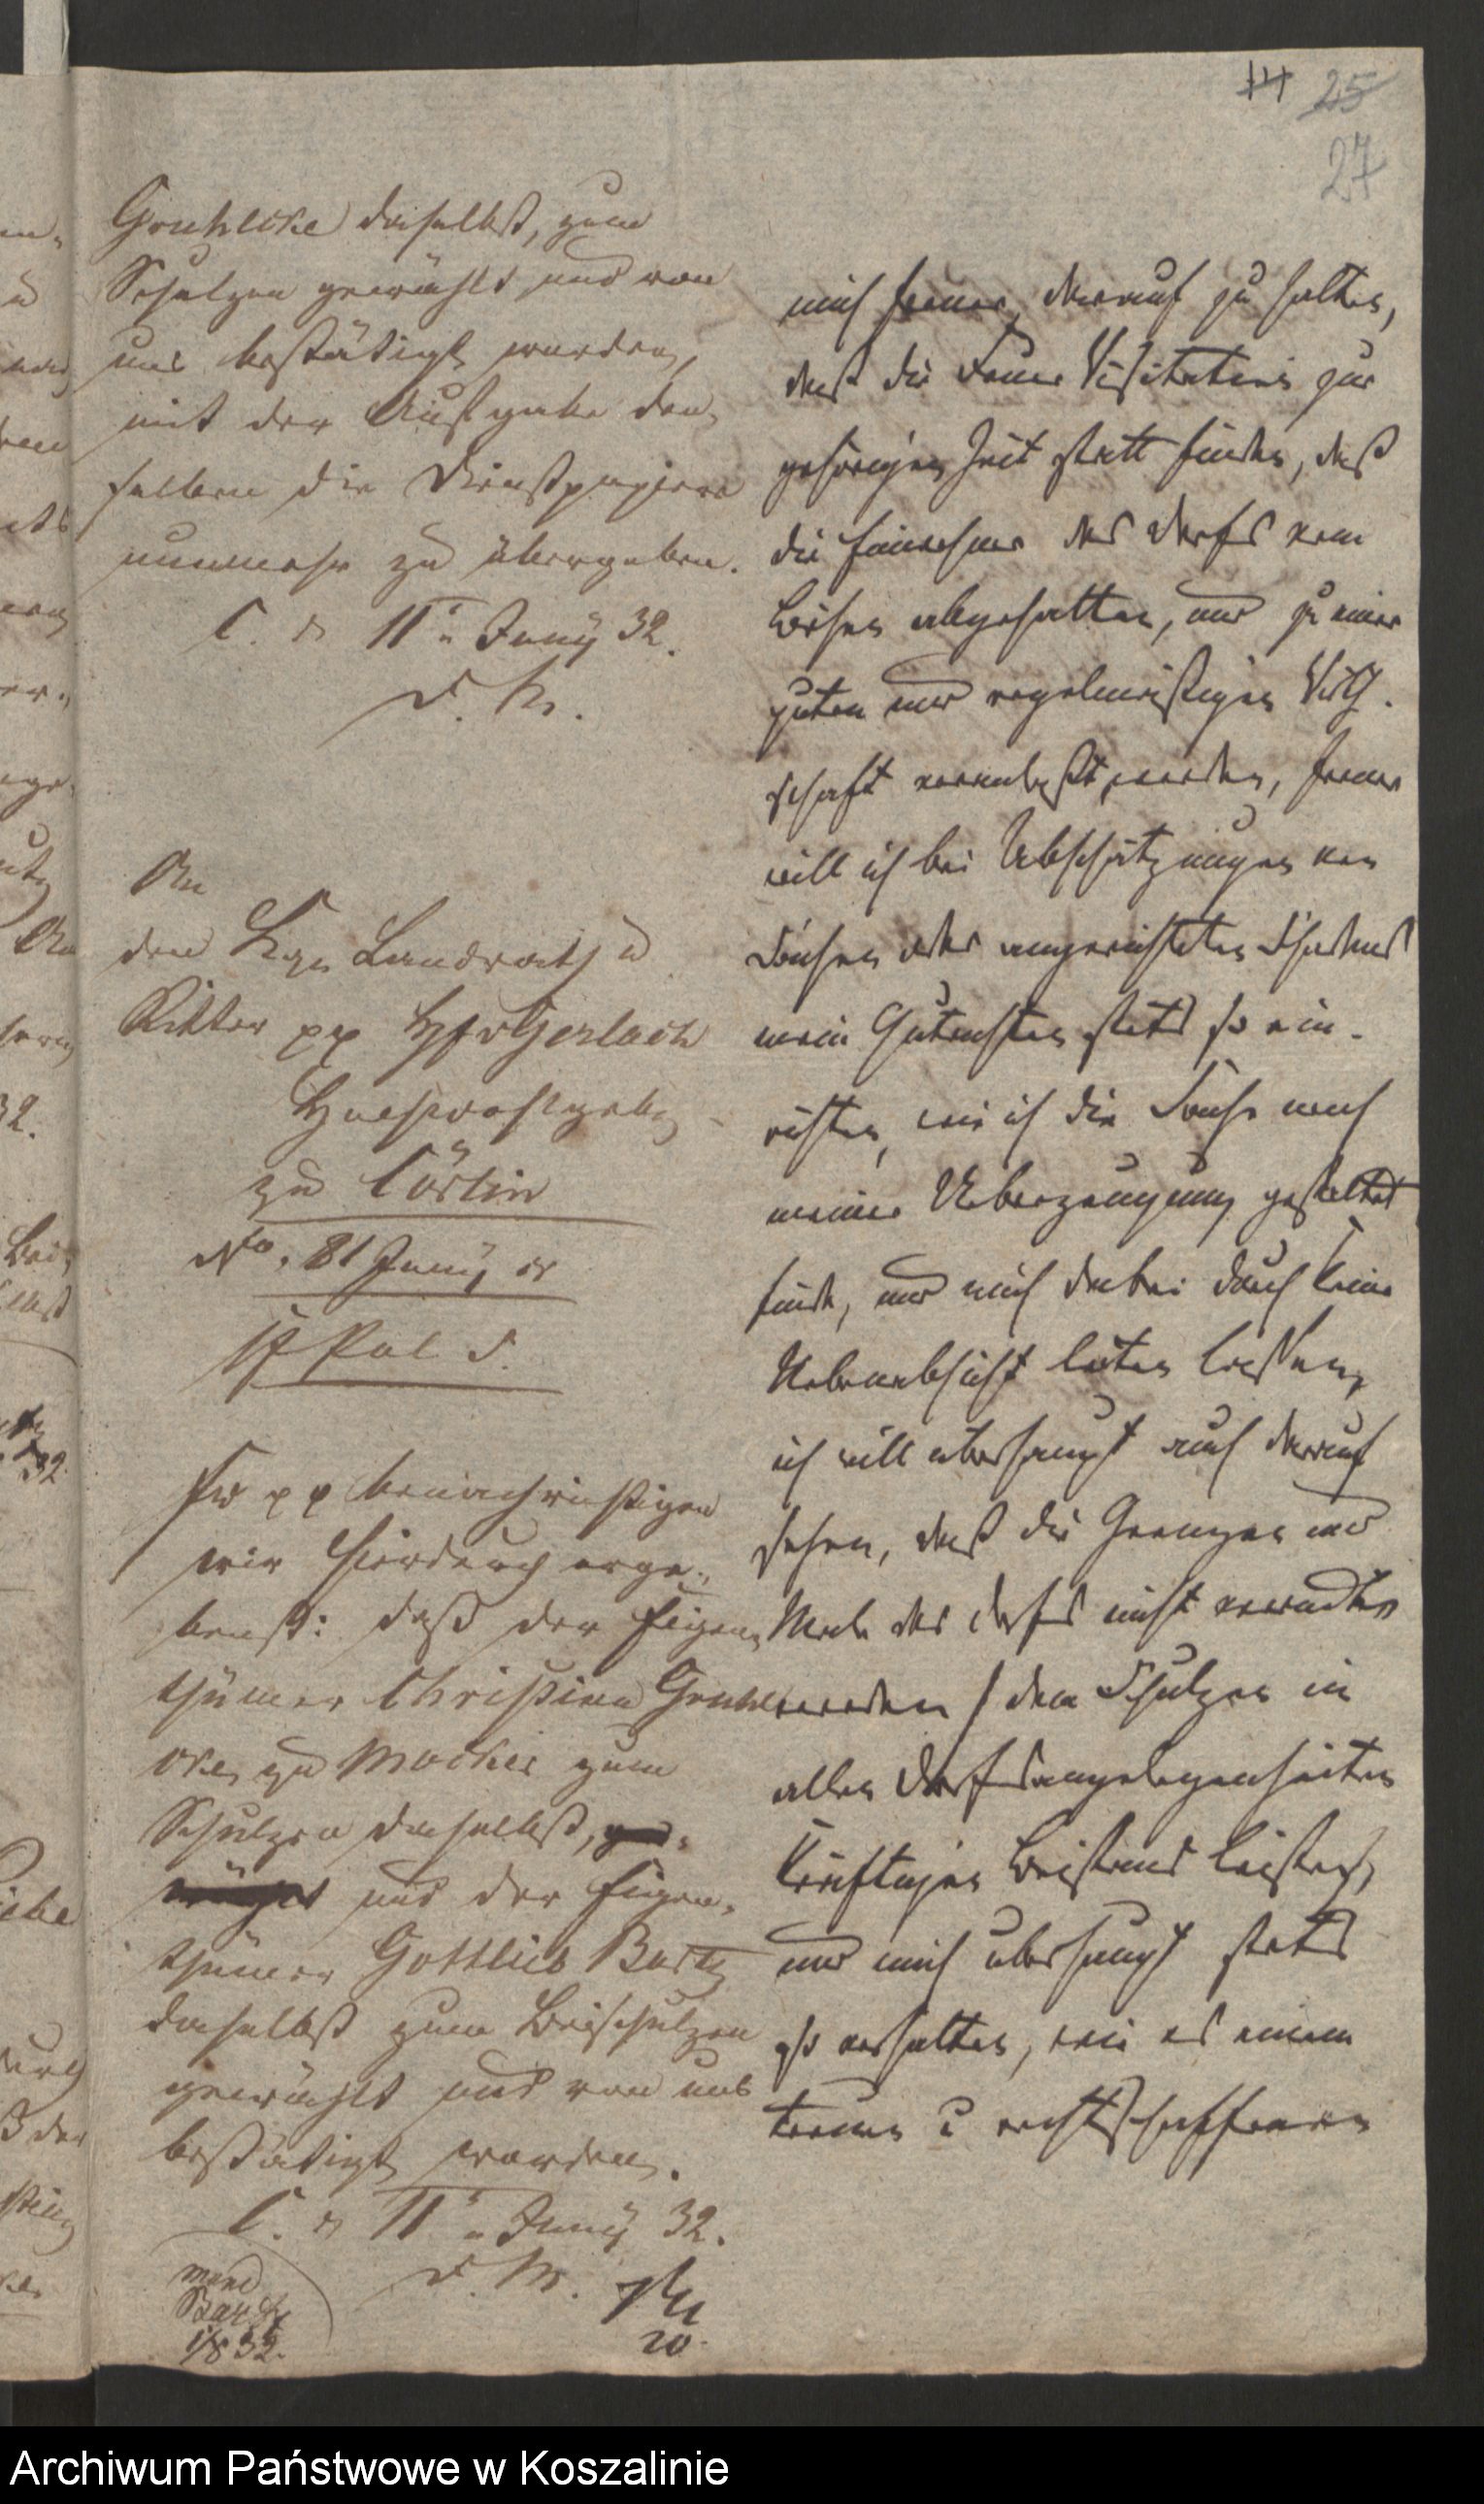 14 25
27
Gruhlcke daselbst, zum
Schulzen gewählt und von
uns bestätigt worden,
mit der Aufgabe den-
selben die Dienstpapiere
nunmehr zu übergeben.
C. d 11t Juny 32.
D. M.
An
den Landrath u
Ritter pp Gerlach
Hochwohlgeb
zu Cöslin
No. 81 Juny cr
pp benachrichtigen
wir hierdurch erge-
benst: daß der Eigen-
thümer Christian Gruhl-
cke zu Mocker zum
Schulzen daselbst,
und der Eigen-
thümer Gottlieb Bartz
daselbst zum Beischulzen
gewählt und von uns
bestätigt worden.
C. d 11t Juny 32.
D. M.
mund
20.
mich ferner, darauf zu halten,
daß die Feuer Visitation zur
gehörigen Zeit statt finden, daß
die Einwohner des Dorfs vom
Bösen abgehalten, und zu einer
guten und regelmäßigen Wirth-
schaft veranlaßt werden, ferner
will ich bei Abschätzungen von
Sachen oder angerichteten Schadens
mein Gutachten stets so ein-
richten, wie ich die Sache nach
meiner Ueberzeugung gestaltet
finde, und mich dabei durch keine
Nebenabsicht leiten lassen,
ich will überhaupt auch darauf
sehen, daß die Grenzen und
Male des Dorfs nicht verrückt
werden, dem Schulzen in
allen Dorfsangelegenheiten
kräftigen Beistand leisten,
und mich überhaupt stets
so verhalten, wie es einem
treuen u rechtschaffenen
Archiwum Państwowe w Koszalinie